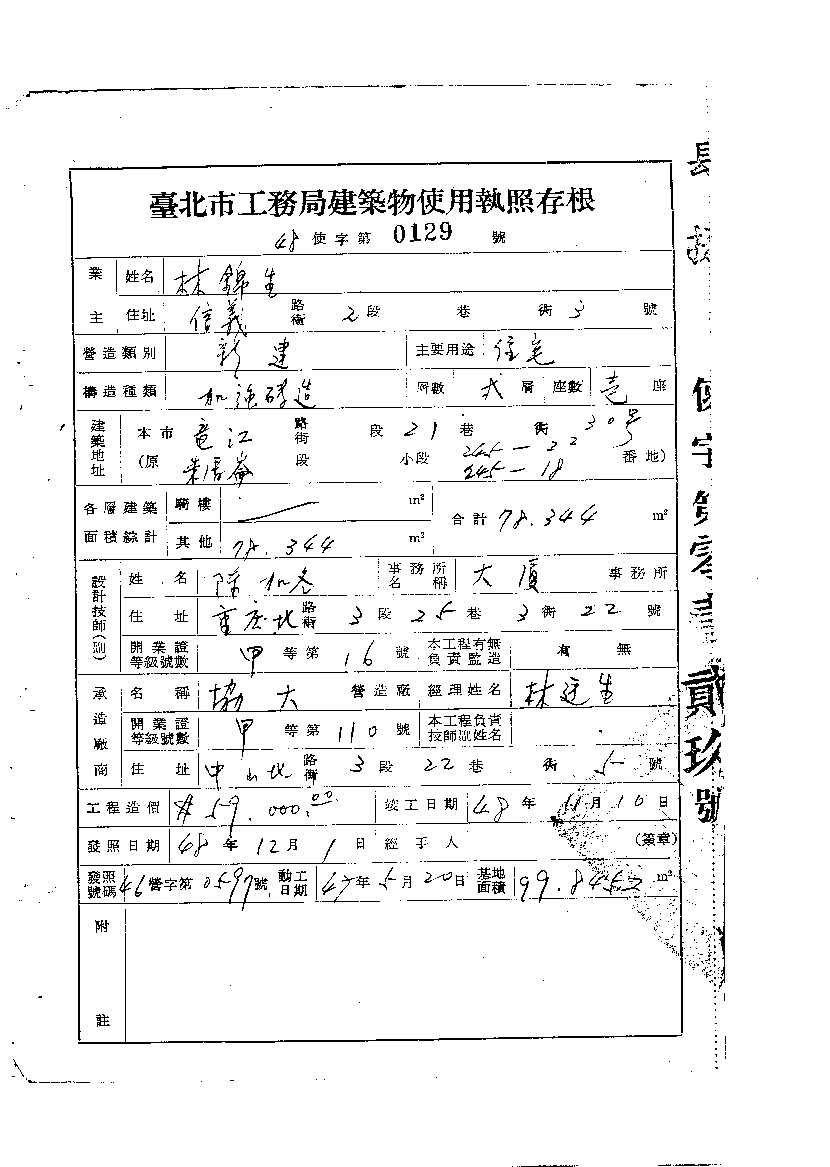 臺北市工務局建築物使用執照存根
48 使字第 0129 號
業主 姓名 林錦生
住址 信義 路街 2 段 巷 衖 3 號
營造類別 新建 主要用途 住宅
構造種類 加強磚造 層數 弍 層 座數 壱 座
建築地址 本市 竜江 路街 段 21 巷 衖 30号
(原 朱厝崙 段 小段 245-22 245-18 番地)
各層建築面積綜計 騎樓 m² 合計 78.344 m²
其他 78.344 m²
設計技師(別) 姓名 陳 事務所名稱 大廈 事務所
住址 重庆北 路街 3 段 25 巷 3 衖 22 號
開業證等級號數 甲 等第 16 號 本工程有無負責監造 有 無
承造廠商 名稱 協大 營造廠 經理姓名 林
開業證等級號數 甲 等第 110 號 本工程負責技師別姓名
住址 中山北 路街 3 段 22 巷 衖 5 號
工程造價 59.000.00 竣工日期 48 年 11 月 10 日
發照日期 48 年 12 月 1 日 經手人 (簽章)
發照號碼 46 營字第 0597 號 動工日期 47 年 5 月 20 日 基地面積 99.845 m²
附註
使字第零壹貳玖號